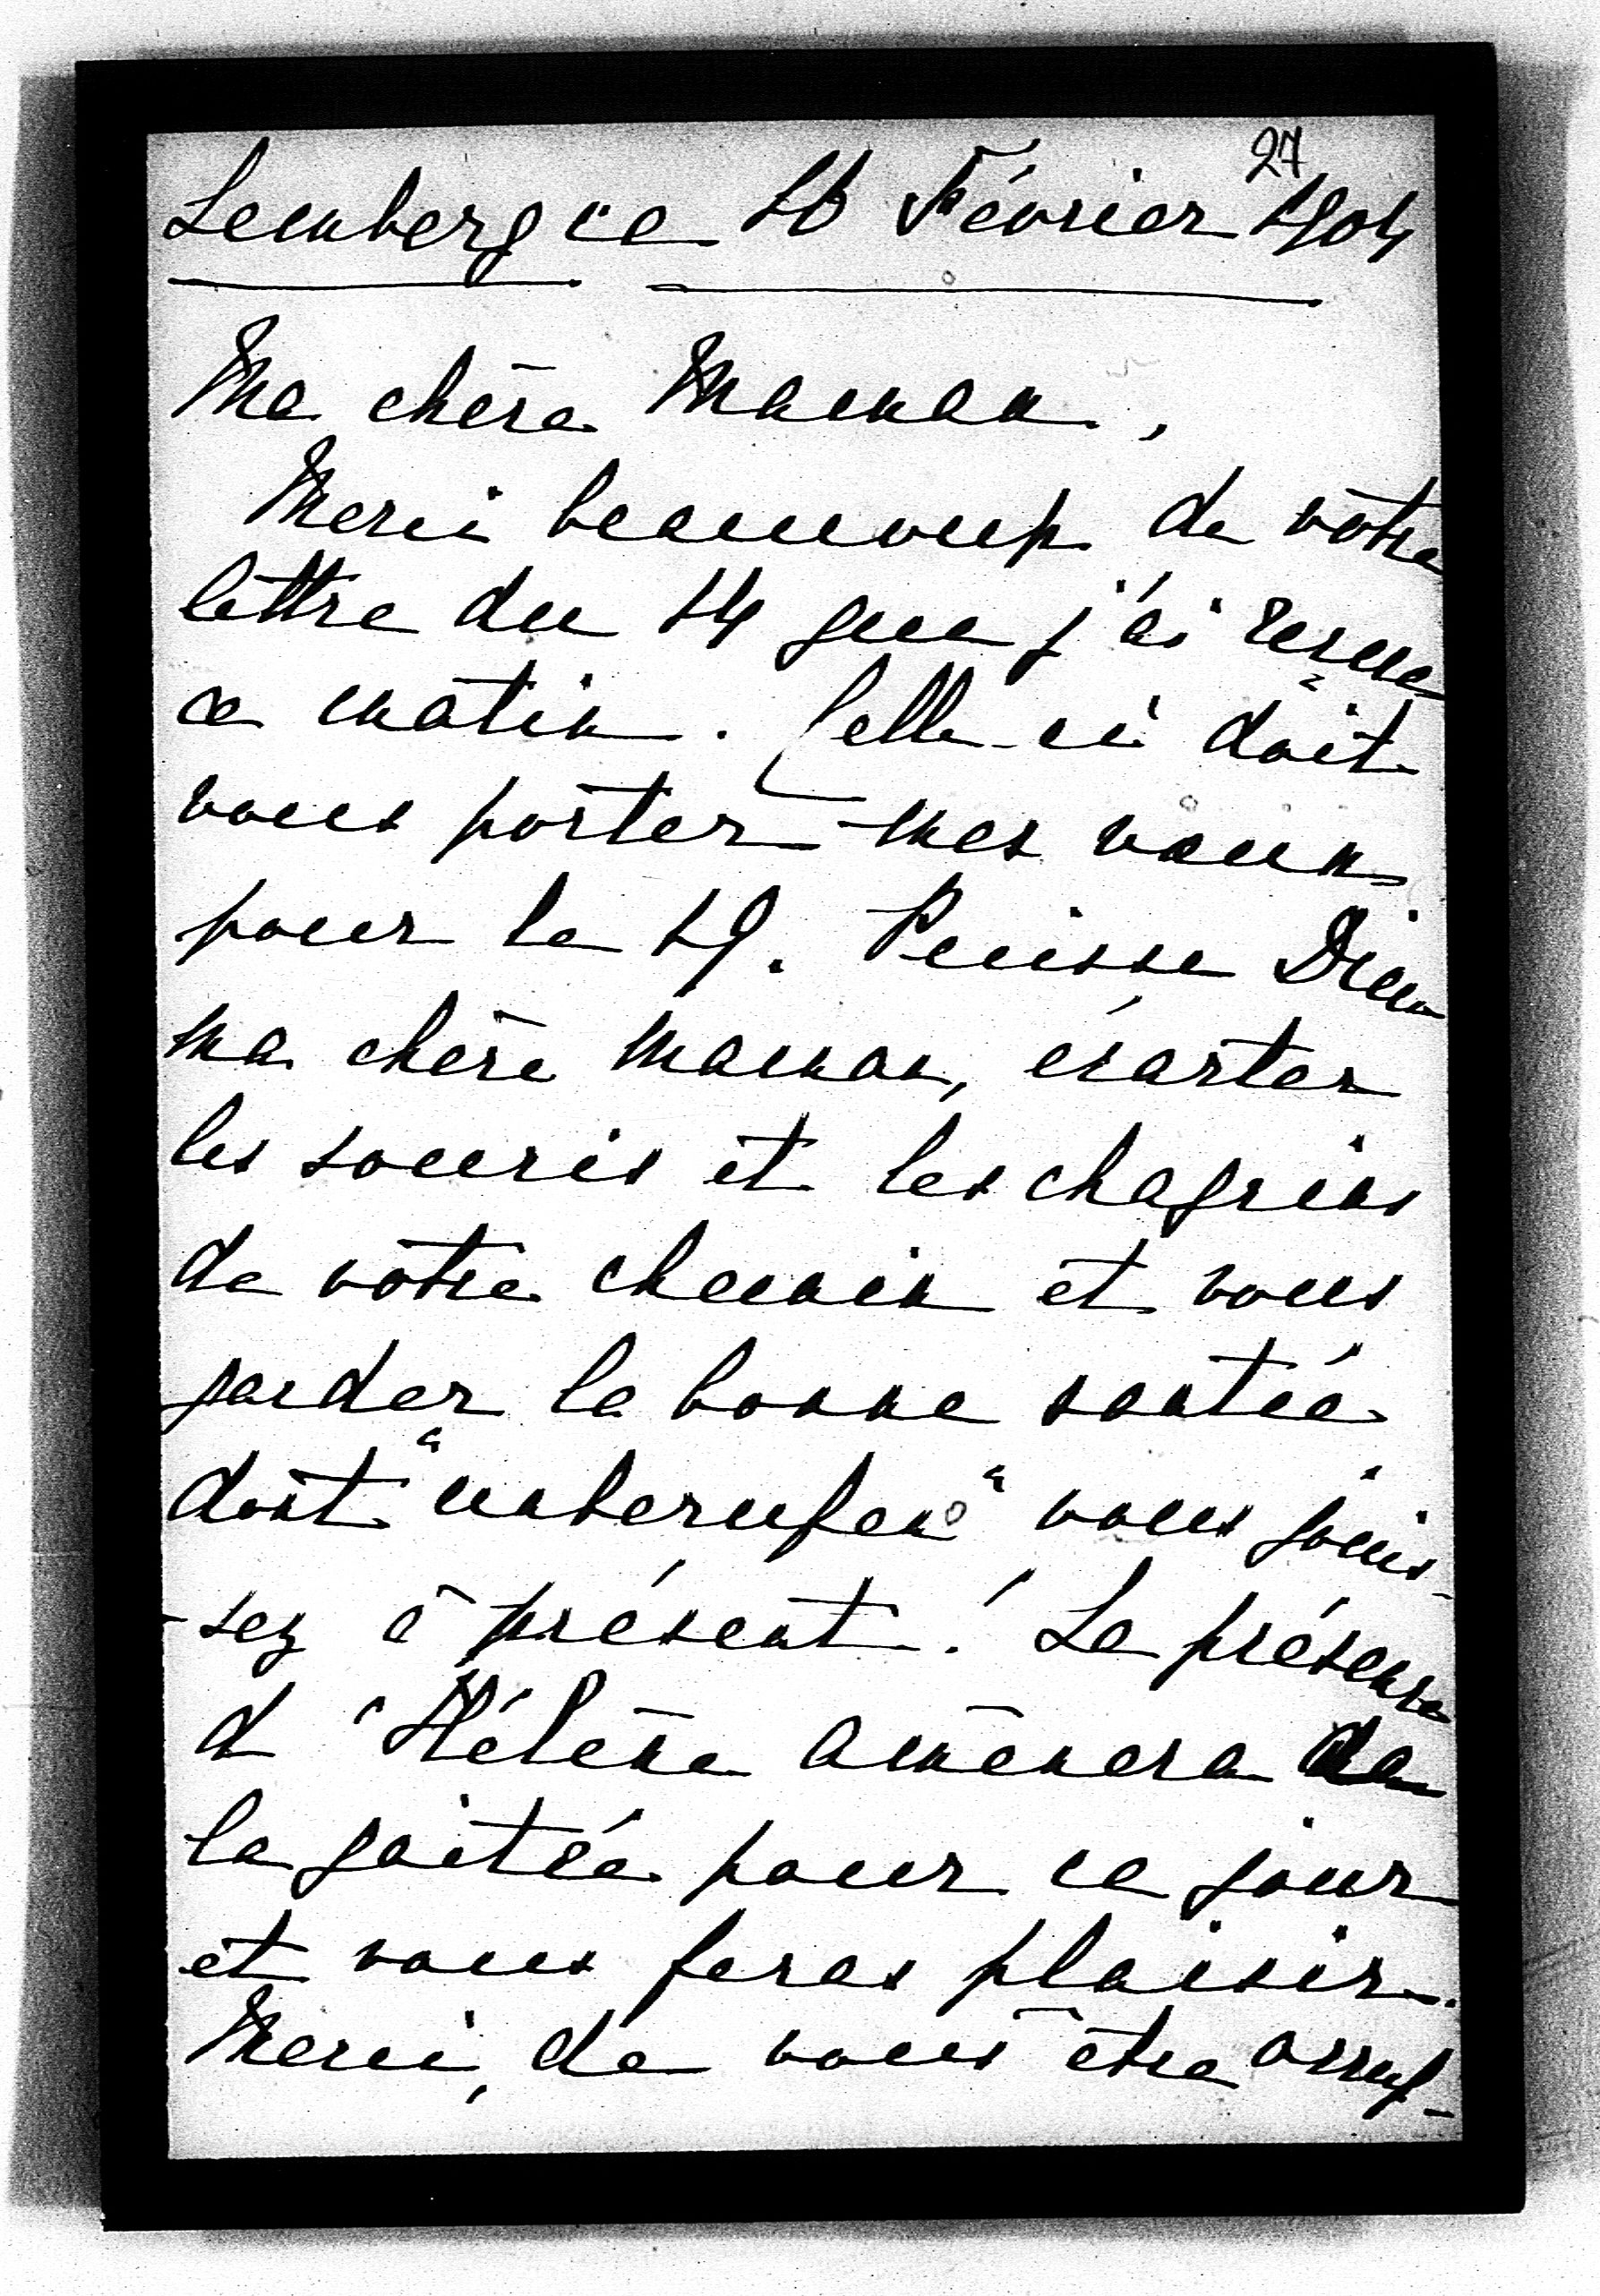 27
Lemberg ce 16 Février 1904
Ma chère Maman,
Merci beaucoup de vôtre
lettre du 14 que j'ai reçue
ce matin. Celle-ci doit
vous porter mes vœux
pour le 19. Puisse Dieu
ma chère Maman, écarter
les soucis et les chagrins
de vôtre chemin et vous
garder la bonne santée
dont "unberufen" vous jouis-
-sez à présent! La présence
d'Hélène amènera de
la gaitée pour ce jour
et vous feras plaisir.
Merci, de vous être occup-